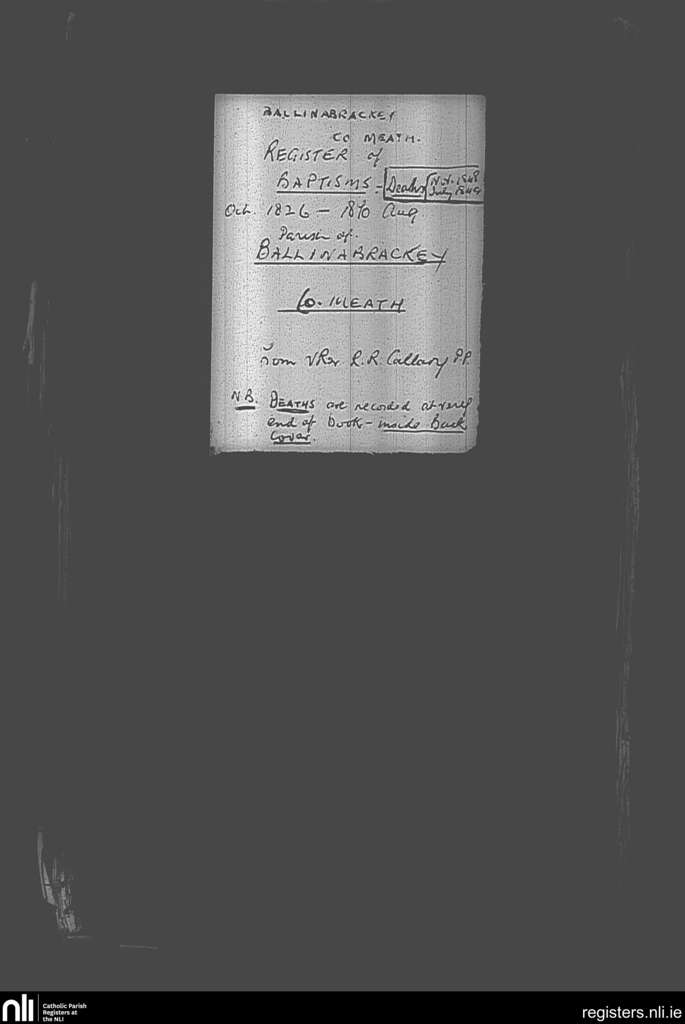 BALLINABRACKEY
CO MEATH.
REGISTER of
BAPTISMS - Deaths Nov. 1848
July 1849
Oct. 1826 - 1870 Aug.
Parish of.
BALLINABRACKEY
Co. MEATH
from V Rev R. R. Callary P.P.
N.B. DEATHS are recorded at very
end of book - inside Back
Cover.
nli
Catholic Parish
Registers at
the NLI
registers.nli.ie